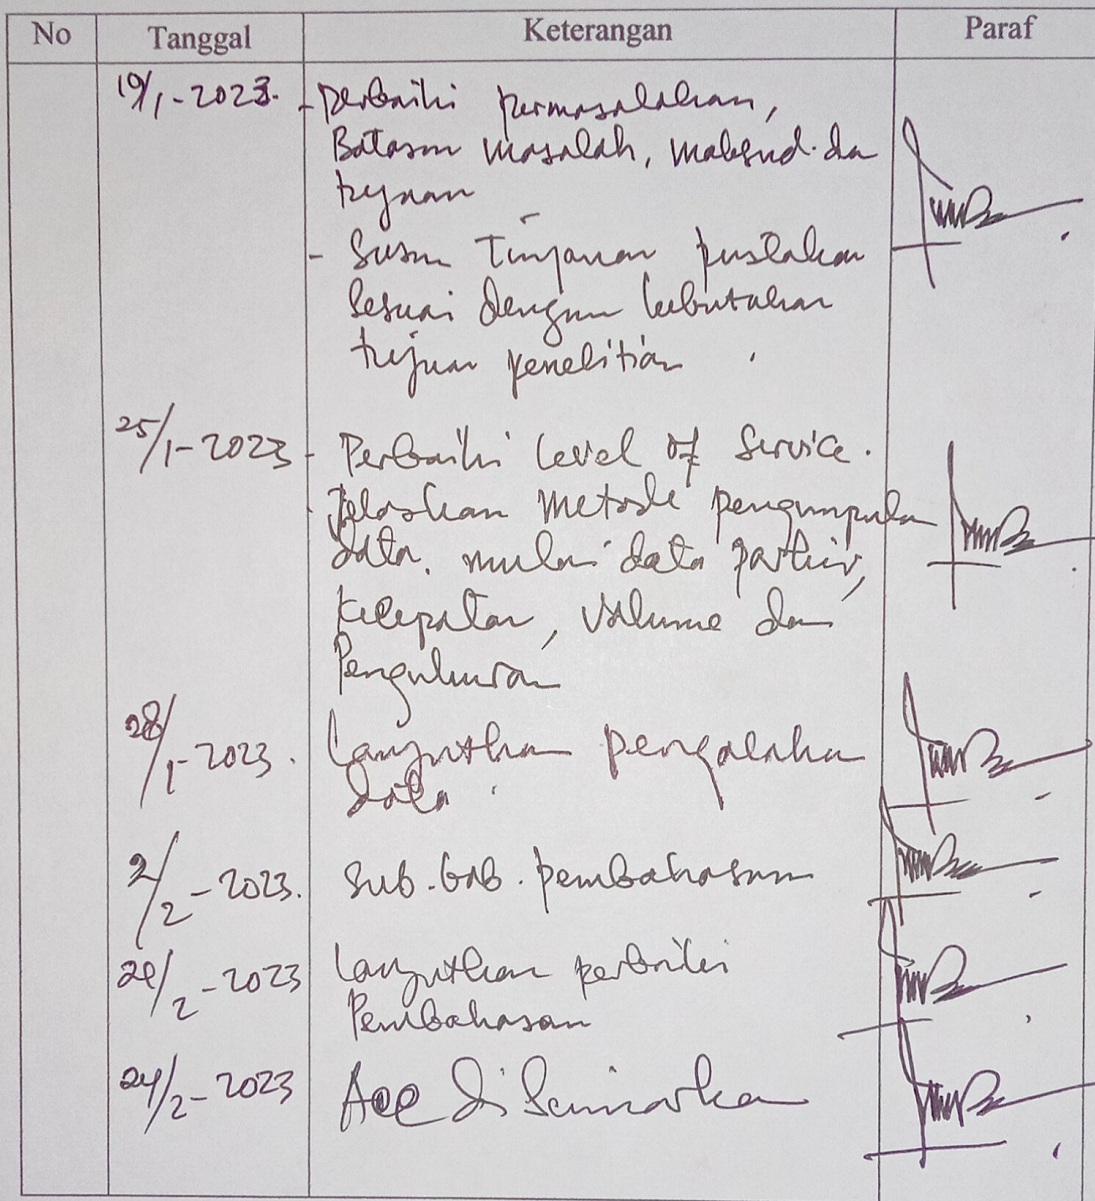 No Tanggal Keterangan Paraf
19/1-2023. - Perbaiki permasalahan,
Batasan masalah, maksud da
tujuan
- Susun Tinjauan pustakan
sesuai dengan kebutuhan
tujuan penelitian
25/1-2023 - Perbaiki level of Service.
- Jelaskan metode pengumpulan
data. mulai data parkir,
kecepatan, volume dan
Pengukuran
28/1-2023. Lanjutkan pengolahan
data
2/2-2023. Sub.bab.pembahasan
/2-2023 Lanjutkan perbaiki
Pembahasan
24/2-2023 Acc diseminarkan